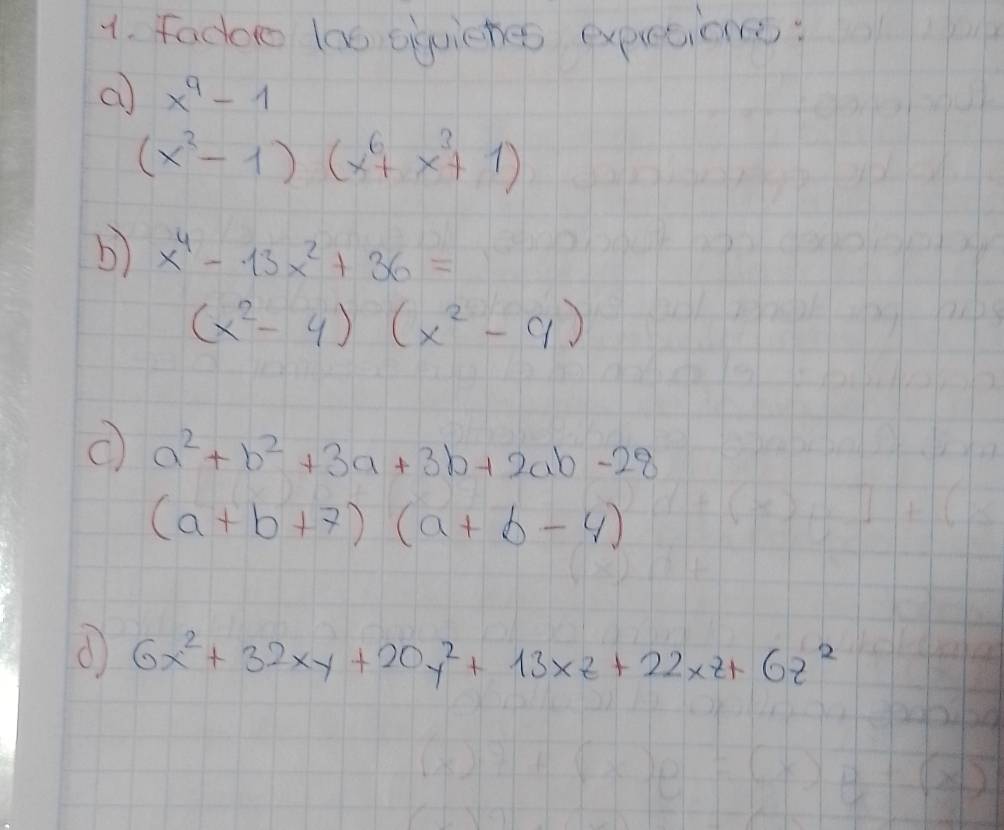 1. Factore las siguientes expresiones:
a) x⁹ - 1
(x³ - 1) (x⁶ + x³ + 1)
b) x⁴ - 13x² + 36 =
(x² - 4) (x² - 9)
c) a² + b² + 3a + 3b + 2ab - 28
(a + b + 7) (a + b - 4)
d) 6x² + 32xy + 20y² + 13xz + 22xz + 6z²